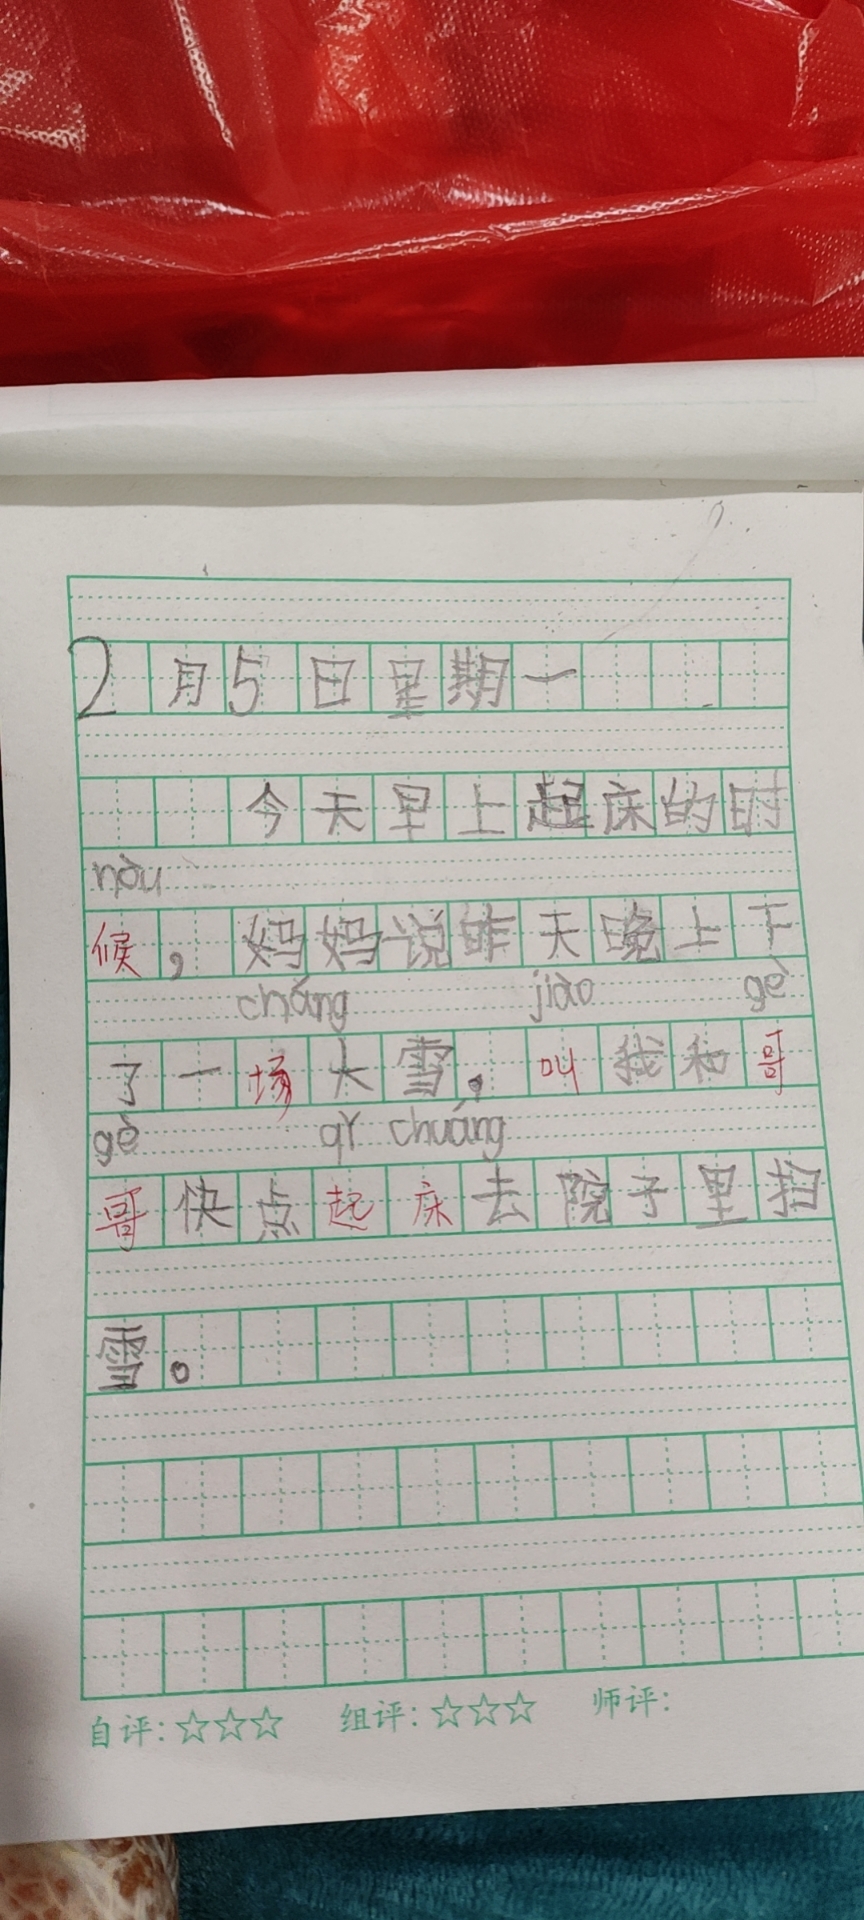 2月5日星期一
今天早上起床的时
hòu
候，妈妈说昨天晚上下
cháng jiào gē
了一场大雪，叫我和哥
gē qǐ chuáng
哥快点起床去院子里扫
雪。
自评:☆☆☆ 组评:☆☆☆ 师评: